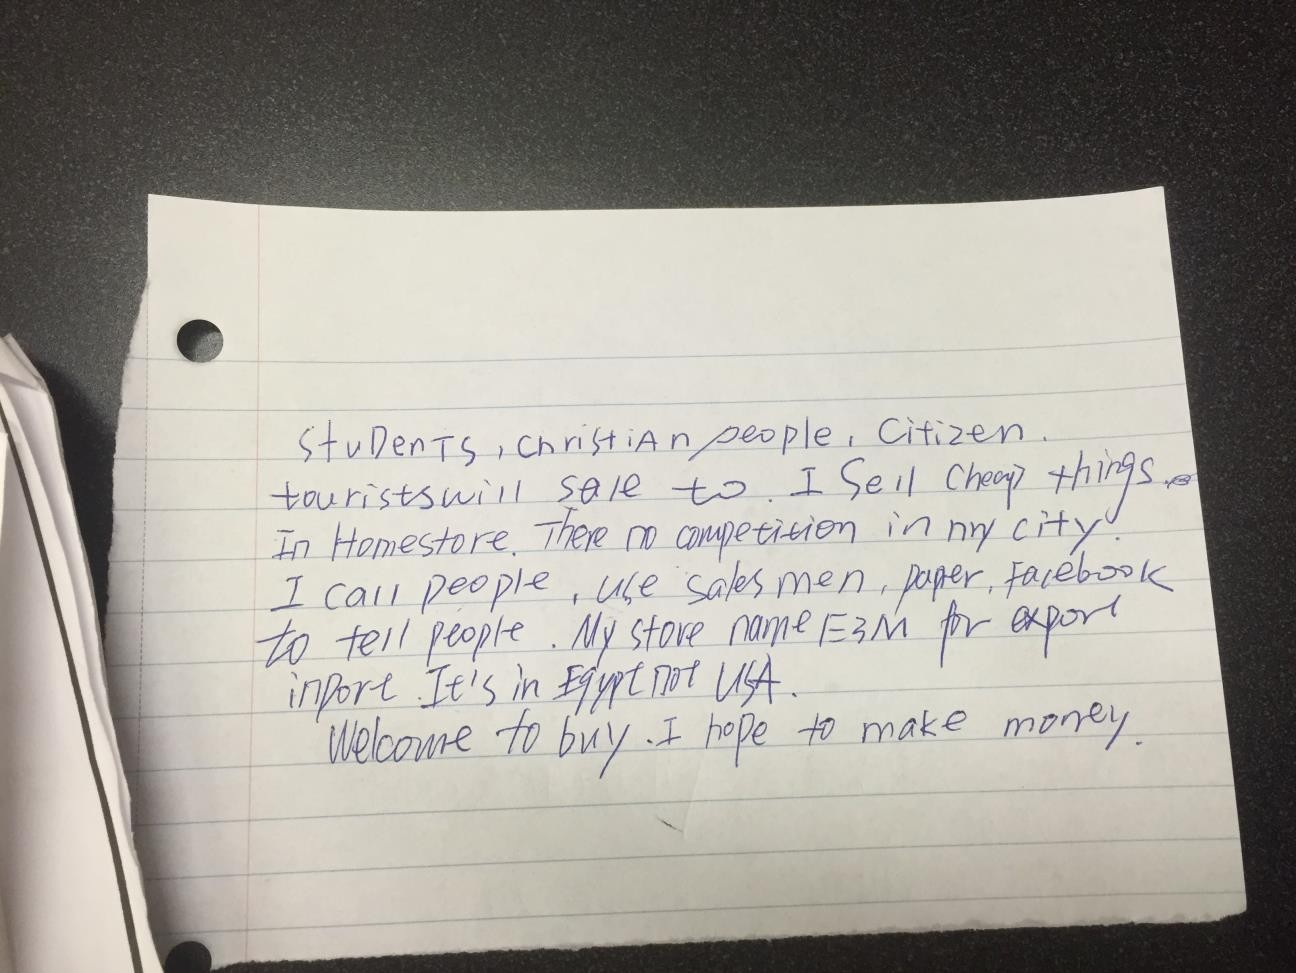 StuDenTS, ChristiAn people, Citizen.
touristswill sale to. I Sell Cheap things.
In Homestore. There no competition in my city.
I call people, use salesmen, paper, Facebook
to tell people. My store name E3M for export
inport. It's in Egypt not USA.
Welcome to buy. I hope to make money.